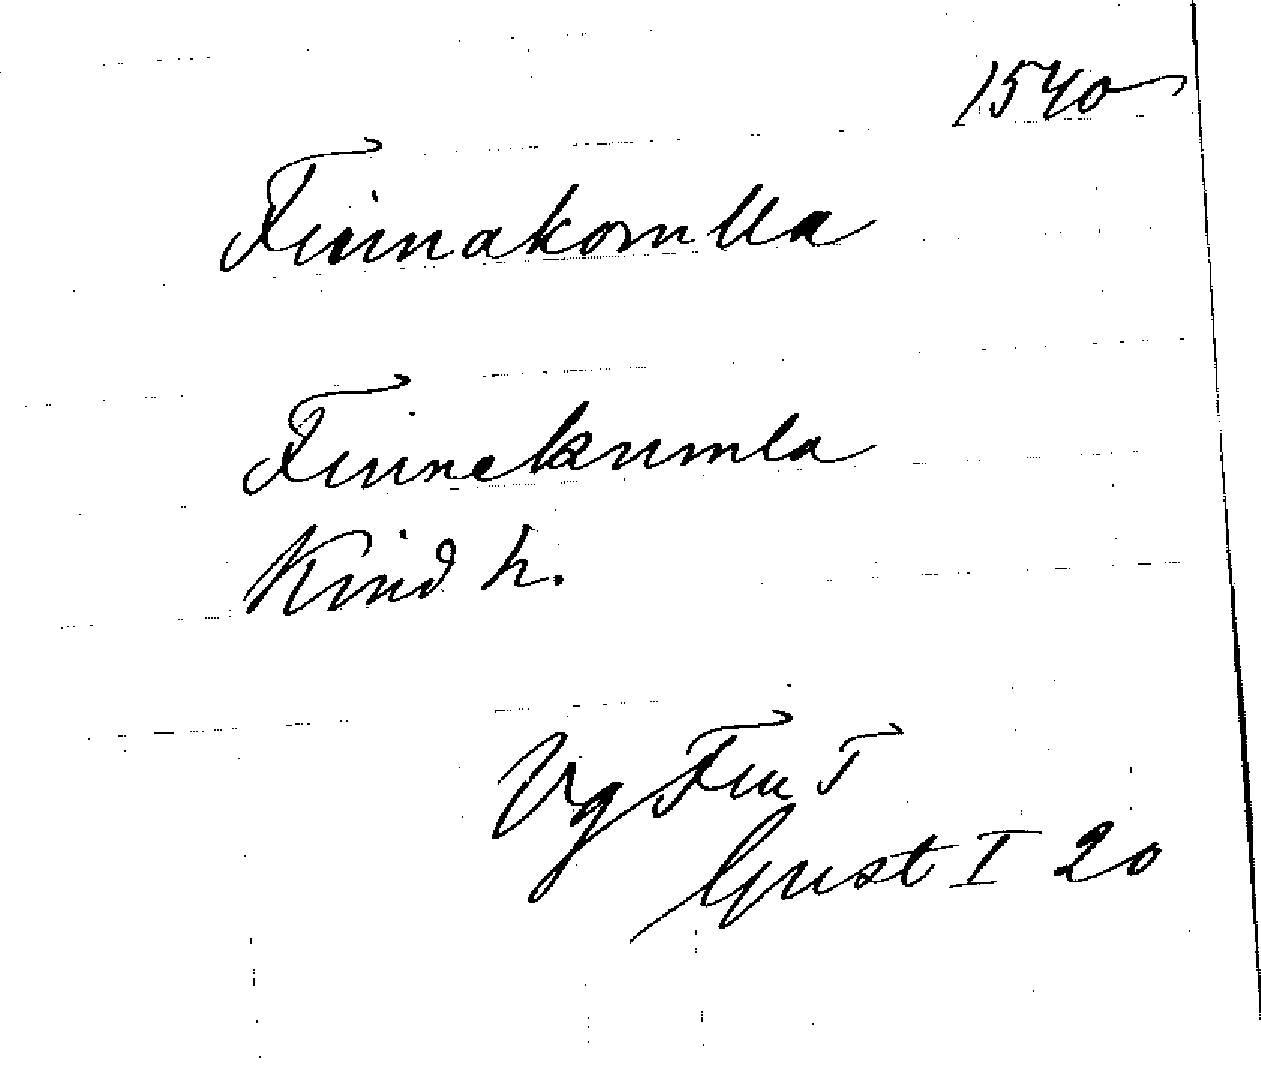 1540
Finnakomlla
Finnekumla
Kind h.
Vg Fin T
Gust I 20